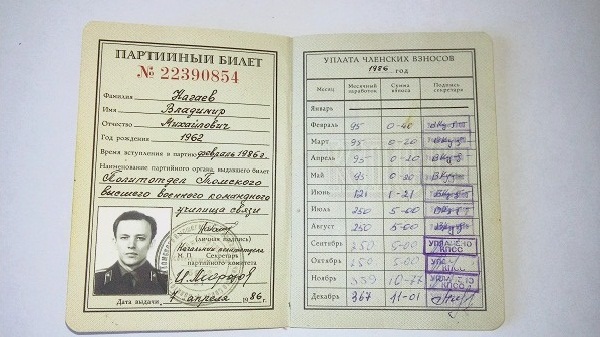 ПАРТИЙНЫЙ БИЛЕТ
№ 22390854
Фамилия Нагаев
Имя Владимир
Отчество Михайлович
Год рождения 1962
Время вступления в партию февраль 1986 г.
Наименование партийного органа, выдавшего билет
Политотдел Томского
высшего военного командного
училища связи
(личная подпись)
Начальник политотдела
М. П. Секретарь
партийного комитета
Дата выдачи 1 апреля 1986 г.
УПЛАТА ЧЛЕНСКИХ ВЗНОСОВ
1986 год
Месяц Месячный заработок Сумма взноса Подпись секретаря
Январь
Февраль 95 0-20
Март 95 0-20
Апрель 95 0-20
Май 95 0-20
Июнь 121 1-21
Июль 250 5-00
Август 250 5-00
Сентябрь 250 5-00 УПЛАЧЕНО КПСС
Октябрь 250 5-00 КПСС
Ноябрь 359 10-77 КПСС
Декабрь 367 11-01